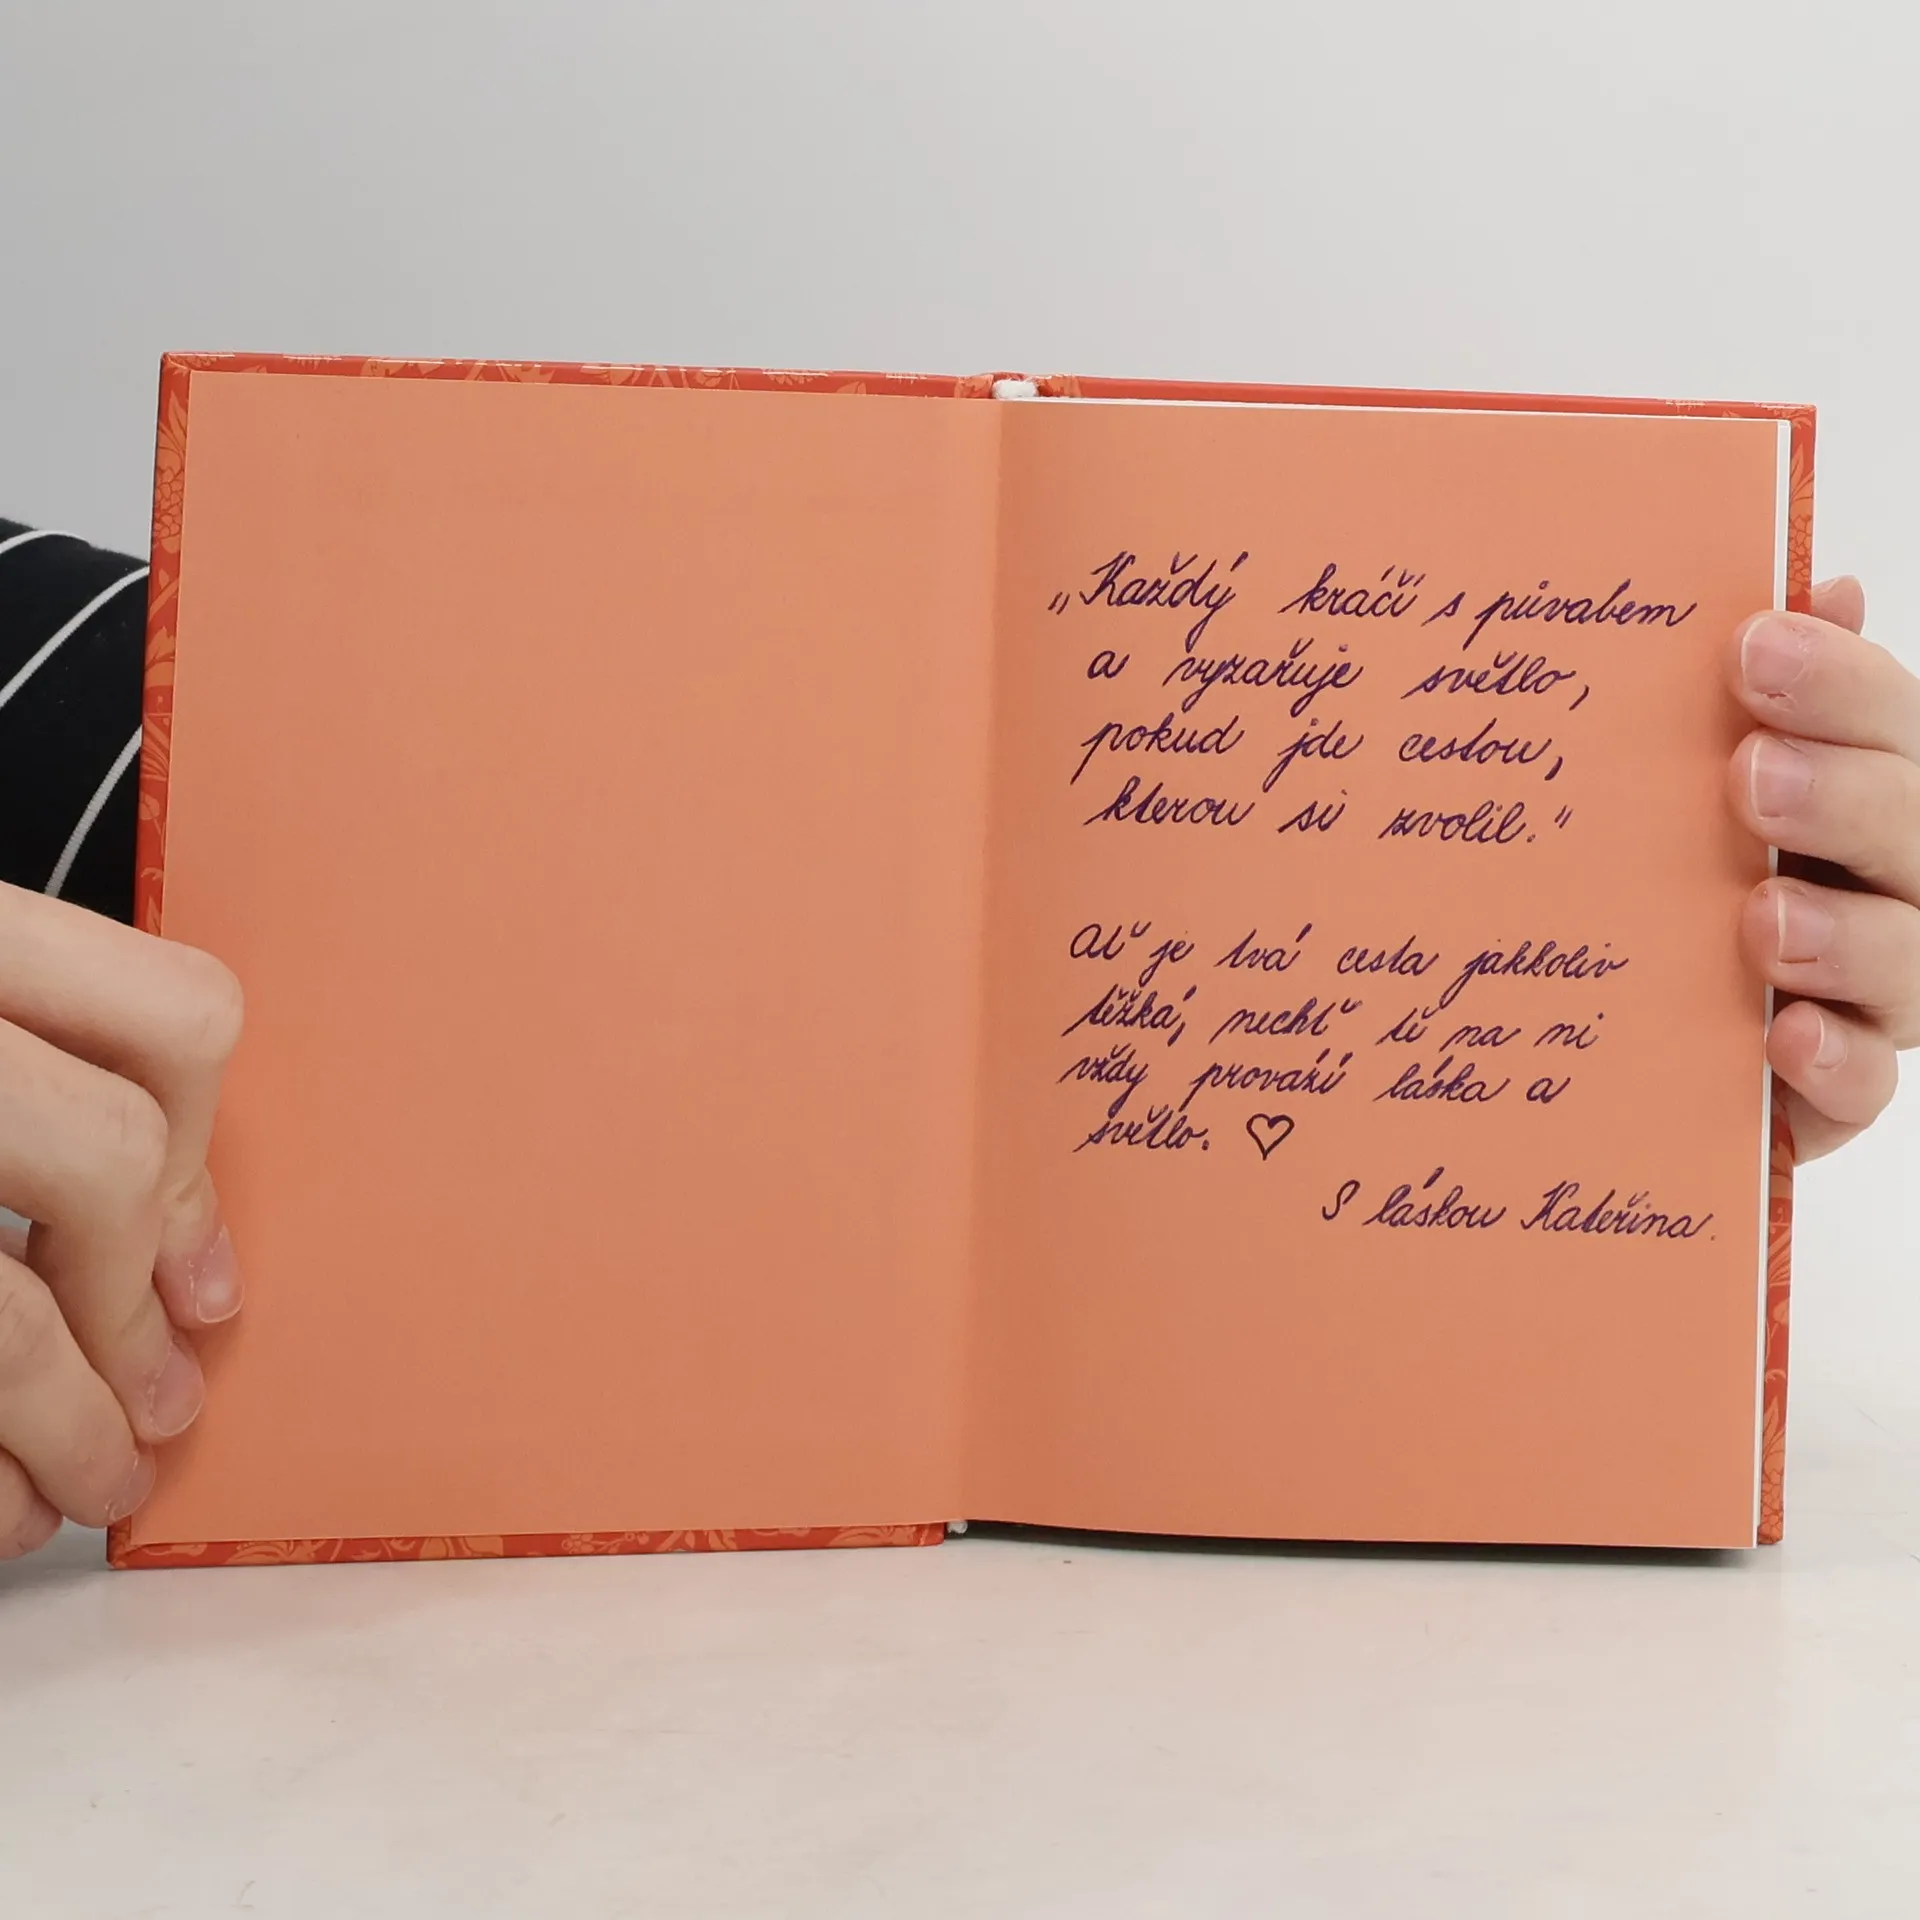 „Každý kráčí s půvabem
a vyzařuje světlo,
pokud jde cestou,
kterou si zvolil."
Ať je tvá cesta jakkoliv
těžká, nechť tě na ni
vždy provází láska a
světlo. ♡
S láskou Kateřina.